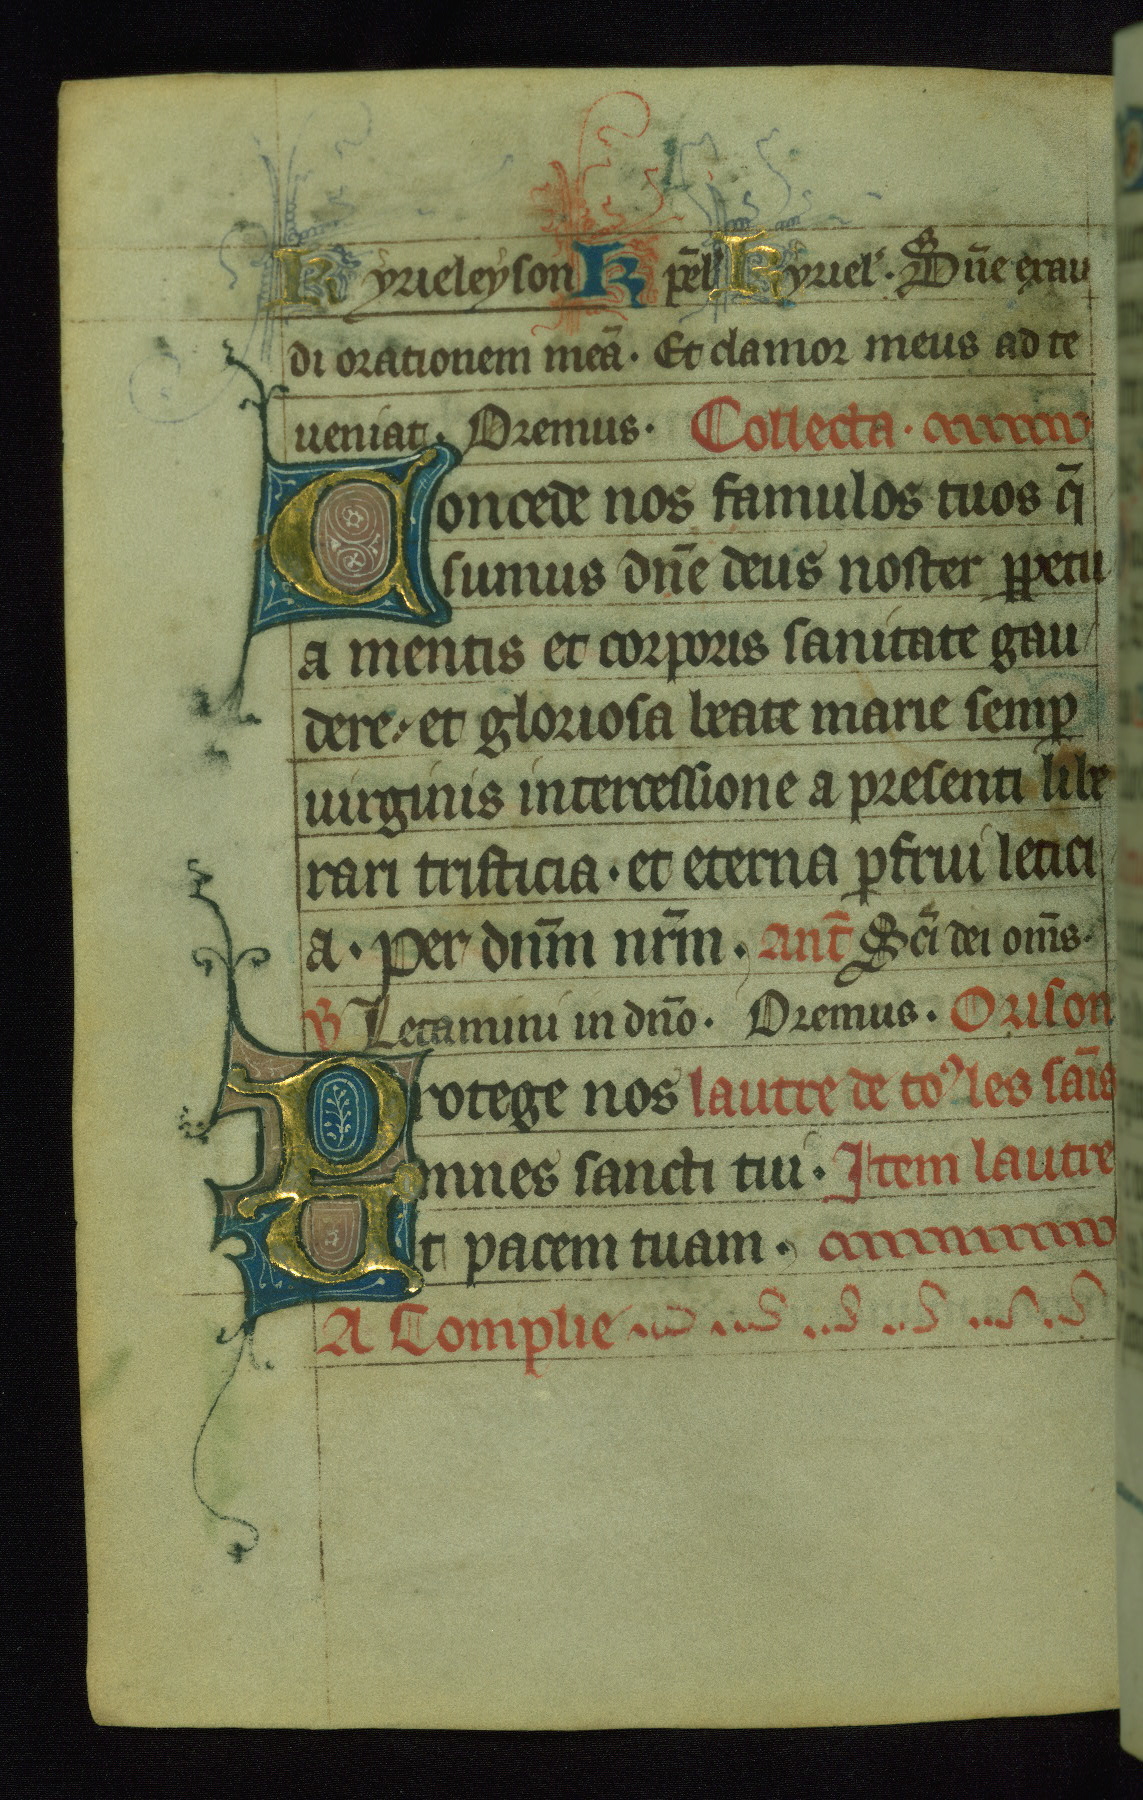 Kyrieleyson Kp̄el' Kyriel'. Dn̄e exau
di orationem meā. Et clamor meus ad te
ueniat. Oremus. Collecta.
Concede nos famulos tuos q̄
sumus dn̄e deus noster ꝑpetu
a mentis et corporis sanitate gau
dere. et gloriosa beate marie semꝑ
uirginis intercessione a presenti libe
rari tristicia. et eterna ꝑfrui letici
a. Per dn̄m nr̄m. Ant̄ Sc̄i dei om̄s.
℣ Letamini in dn̄o. Oremus. Orison
Protege nos lautre de to⁹ les saīs
Omnes sancti tui. Item lautre
Et pacem tuam.
A Complie